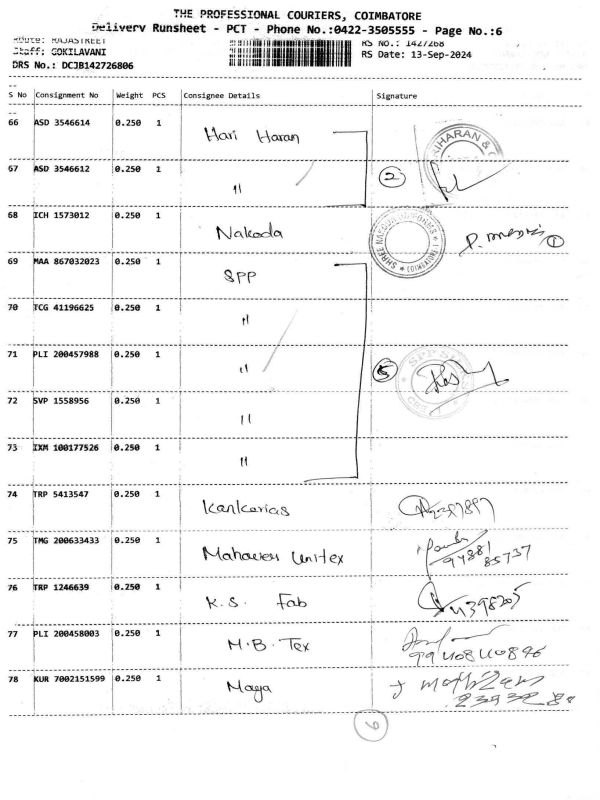 THE PROFESSIONAL COURIERS, COIMBATORE
Delivery Runsheet - PCT - Phone No.:0422-3505555 - Page No.:6
Route: RAJASTREET
RS No.: 1427268
Staff: GOKILAVANI
RS Date: 13-Sep-2024
DRS No.: DCJB142726806
S No Consignment No Weight PCS Consignee Details Signature
66 ASD 3546614 0.250 1 Hari Haran
67 ASD 3546612 0.250 1 " 2
68 ICH 1573012 0.250 1 Nakoda 1
69 MAA 867032023 0.250 1 SPP
70 TCG 41196625 0.250 1 "
71 PLI 200457988 0.250 1 " 5
72 SVP 1558956 0.250 1 "
73 IXM 100177526 0.250 1 "
74 TRP 5413547 0.250 1 Kankarias
75 TMG 200633433 0.250 1 Mahaveer Unitex 94881
85737
76 TRP 1246639 0.250 1 K.S. Fab
77 PLI 200458003 0.250 1 M.B. Tex
78 KUR 7002151599 0.250 1 Maya
6